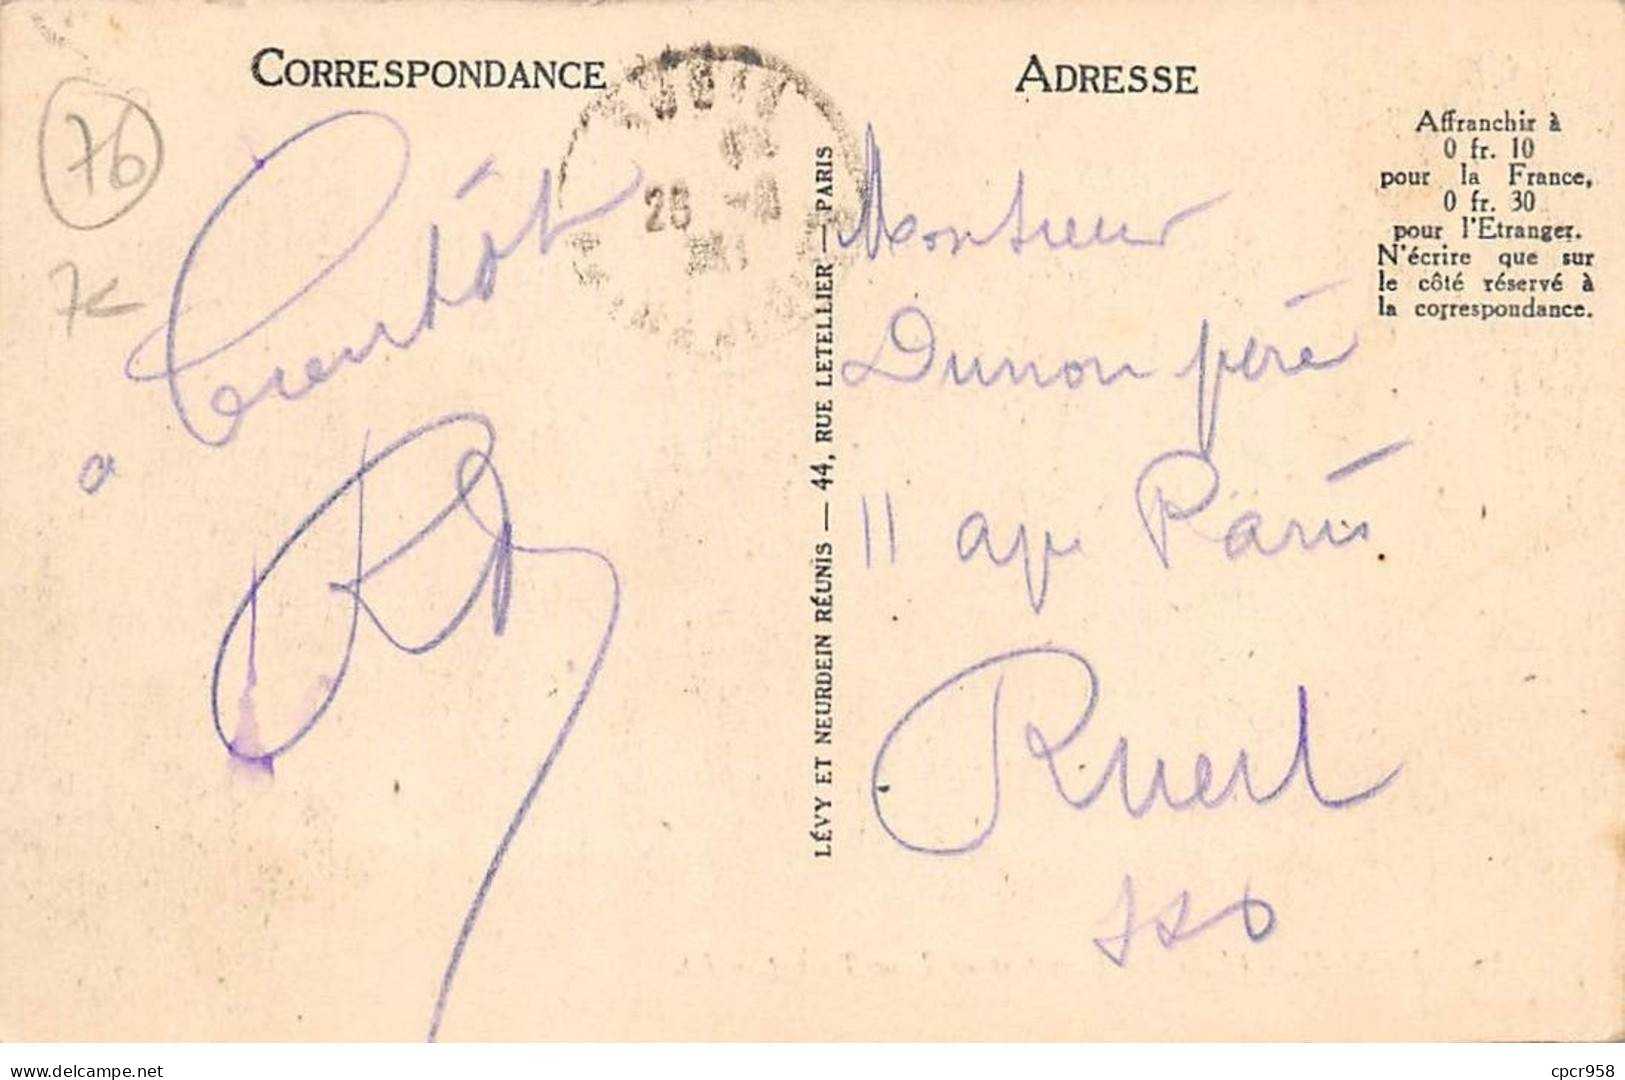 CORRESPONDANCE
76
à bientôt
LÉVY ET NEURDEIN RÉUNIS — 44, RUE LETELLIER — PARIS
ADRESSE
Affranchir à
0 fr. 10
pour la France,
0 fr. 30
pour l'Etranger.
N'écrire que sur
le côté réservé à
la correspondance.
Monsieur
Dunon père
11 Paris
Rueil
S&O
delcampe.net
cpcr958